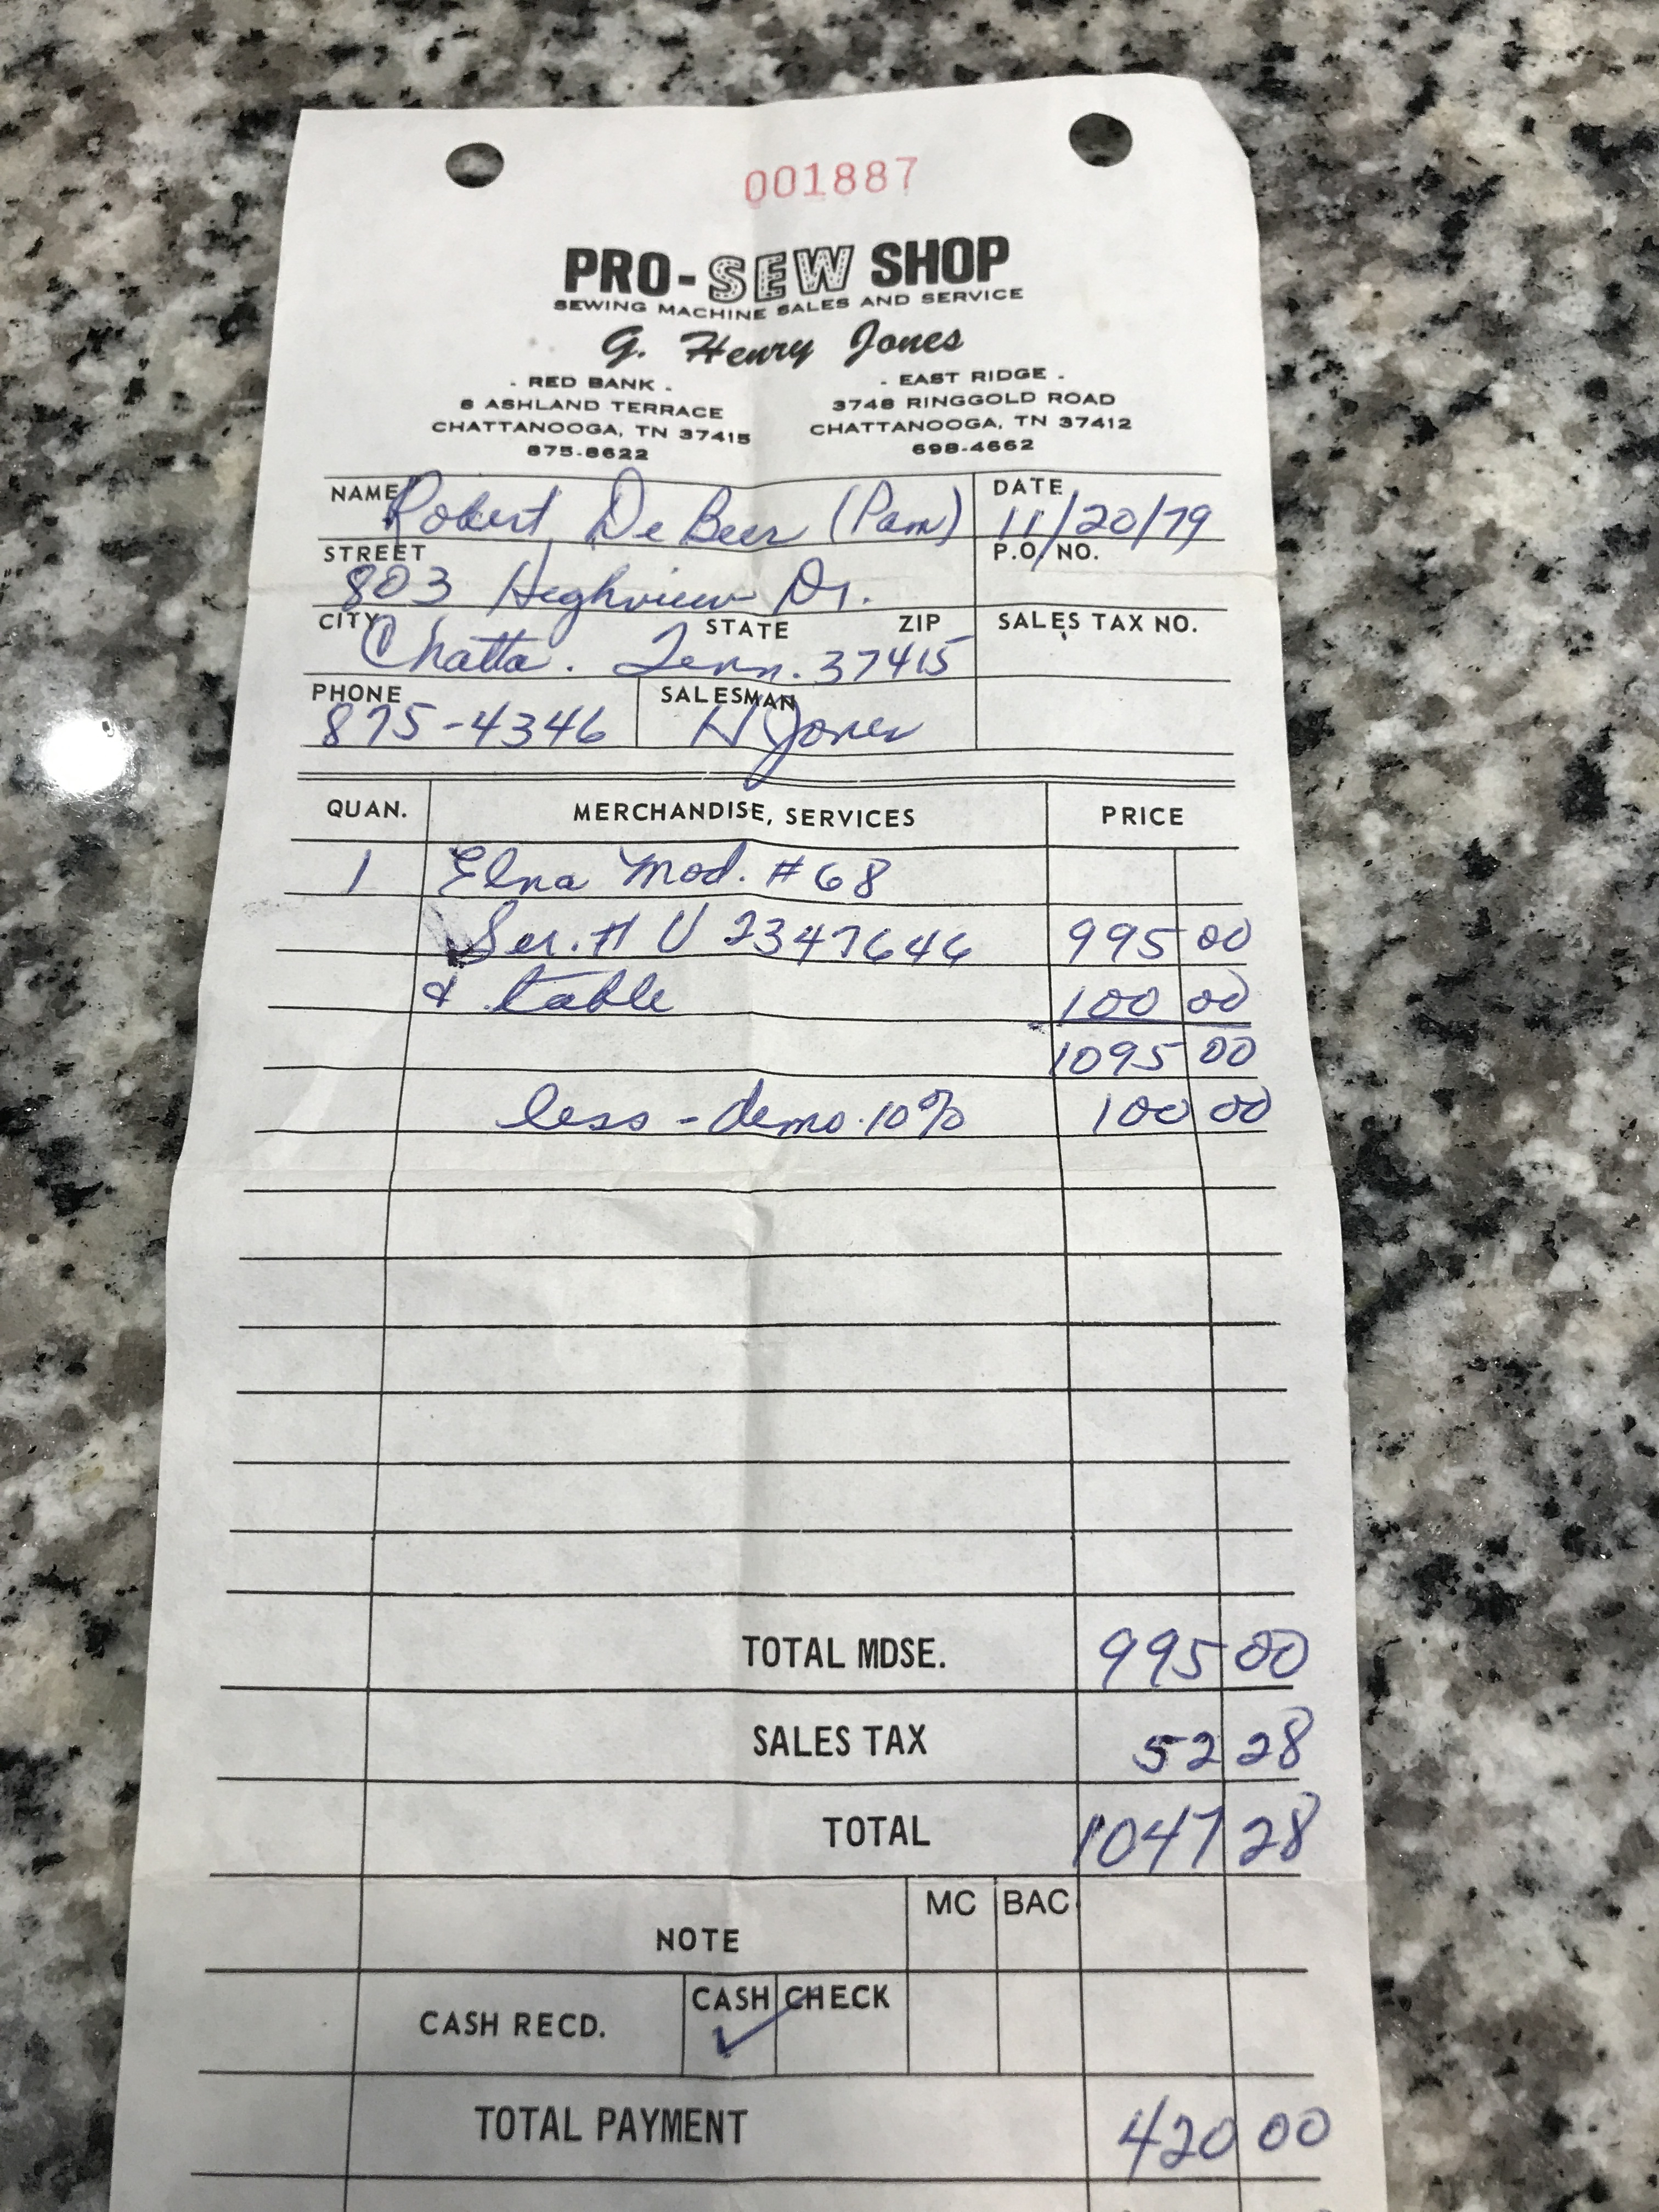 001887
PRO-SEW SHOP
SEWING MACHINE SALES AND SERVICE
G. Henry Jones
- RED BANK -
6 ASHLAND TERRACE
CHATTANOOGA, TN 37415
875-8622
- EAST RIDGE -
3748 RINGGOLD ROAD
CHATTANOOGA, TN 37412
698-4662
NAME Robert DeBeer (Pam) DATE 11/20/79
STREET 803 Highview Dr. P.O. NO.
CITY Chatta. STATE Tenn. ZIP 37415 SALES TAX NO.
PHONE 875-4346 SALESMAN H Jones
QUAN. MERCHANDISE, SERVICES PRICE
1 Elna Mod. #68
Ser. # U 2347646 995 00
& table 100 00
1095 00
less - demo. 10% 100 00
TOTAL MDSE. 995 00
SALES TAX 52 28
TOTAL 1047 28
NOTE MC BAC
CASH RECD. CASH ✓ CHECK
TOTAL PAYMENT 420 00